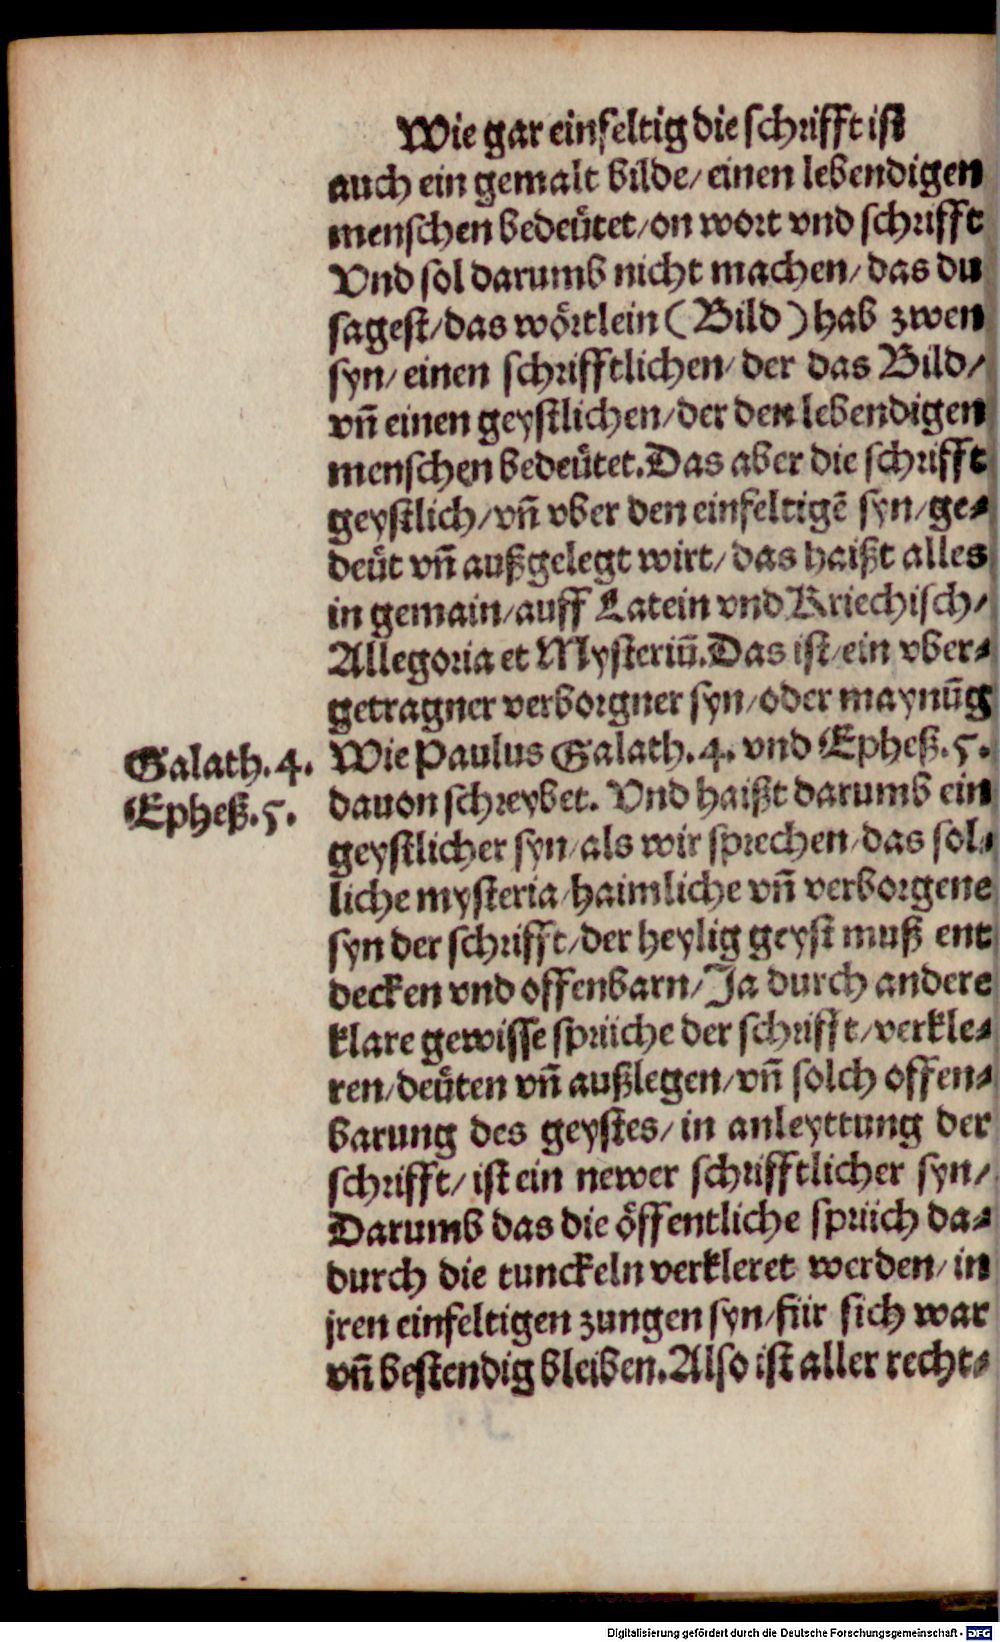 Wie gar einfeltig die schrifft ist
auch ein gemalt bilde/ einen lebendigen
menschen bedeütet/ on wort vnd schrifft
Vnd sol darumb nicht machen/ das du
sagest/ das wörtlein (Bild) hab zwen
syn/ einen schrifftlichen/ der das Bild/
vñ einen geystlichen/ der den lebendigen
menschen bedeütet. Das aber die schrifft
geystlich/ vñ vber den einfeltigẽ syn/ ge-
deüt vñ außgelegt wirt/ das haißt alles
in gemain/ auff Latein vnd Kriechisch/
Allegoria et Mysteriũ. Das ist/ ein vber-
getragner verborgner syn/ oder maynũg
Galath. 4. Wie Paulus Galath. 4. vnd Epheß. 5.
Epheß. 5. dauon schreybet. Vnd haißt darumb ein
geystlicher syn/ als wir sprechen/ das sol-
liche mysteria/ haimliche vñ verborgene
syn der schrifft/ der heylig geyst muß ent
decken vnd offenbarn/ Ja durch andere
klare gewisse sprüche der schrifft/ verkle-
ren/ deüten vñ außlegen/ vñ solch offen-
barung des geystes/ in anleyttung der
schrifft/ ist ein newer schrifftlicher syn/
Darumb das die öffentliche sprüch da-
durch die tunckeln verkleret werden/ in
jren einfeltigen zungen syn/ für sich war
vñ bestendig bleiben. Also ist aller recht-
Digitalisierung gefördert durch die Deutsche Forschungsgemeinschaft - DFG